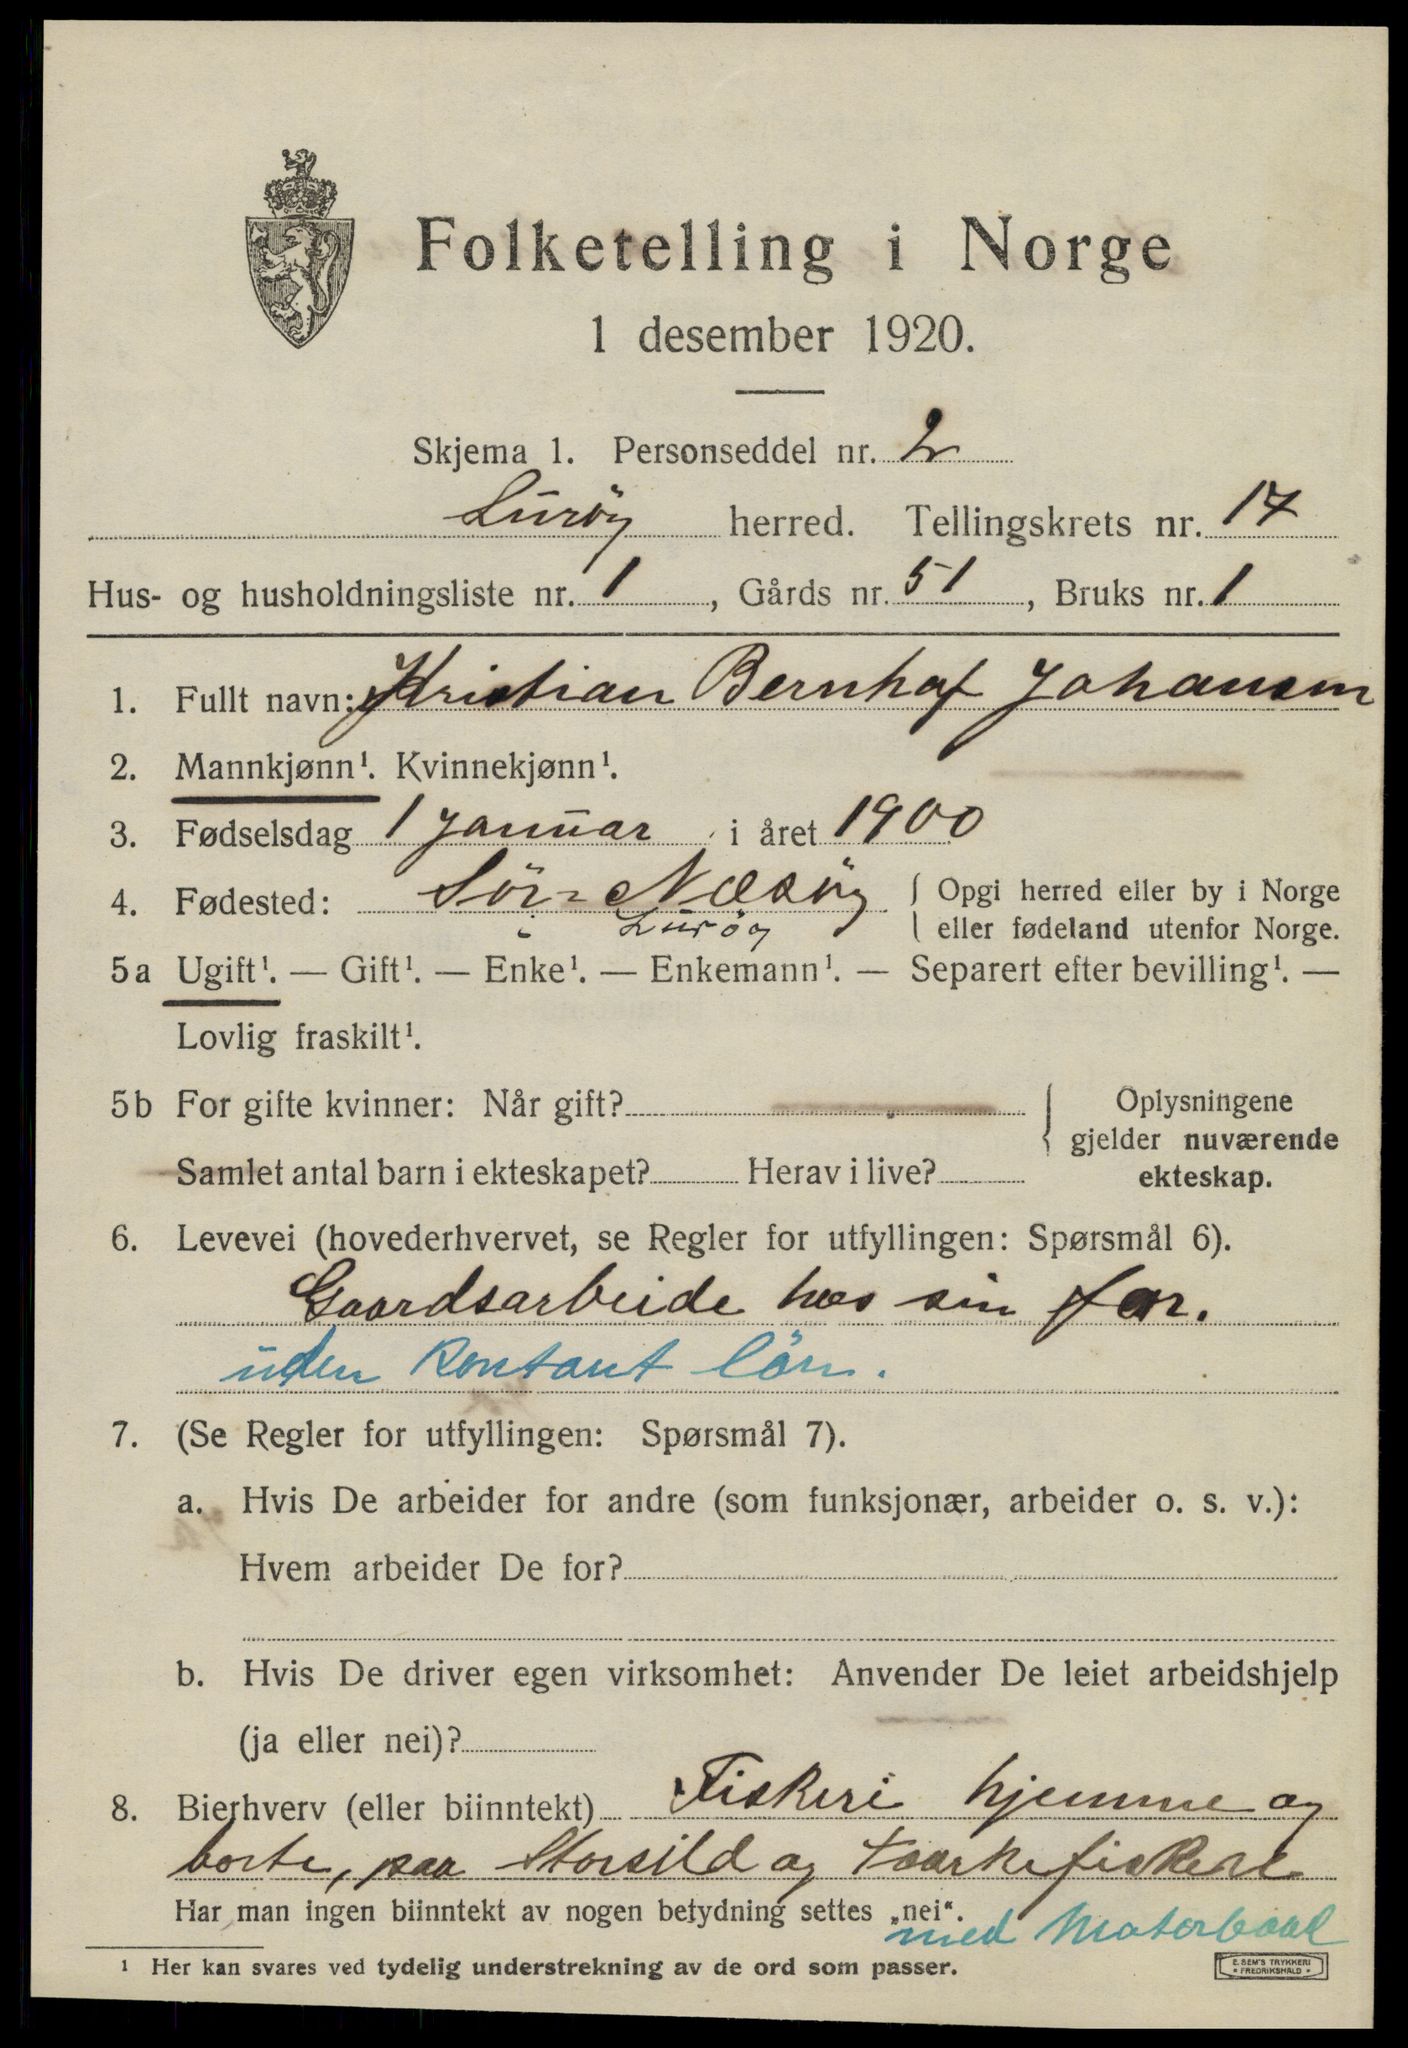 Folketelling i Norge
1 desember 1920.
Skjema 1. Personseddel nr. 2
Lurøy herred. Tellingskrets nr. 17
Hus- og husholdningsliste nr. 1, Gårds nr. 51, Bruks nr. 1
1. Fullt navn: Kristian Bernhof Johansen
2. Mannkjønn¹. Kvinnekjønn¹.
3. Fødselsdag 1 Januar i året 1900
4. Fødested: Sör-Næsöy { Opgi herred eller by i Norge
i Luröy eller fødeland utenfor Norge.
5a Ugift¹. — Gift¹. — Enke¹. — Enkemann¹. — Separert efter bevilling¹. —
Lovlig fraskilt¹.
5b For gifte kvinner: Når gift? { Oplysningene
gjelder nuværende
Samlet antal barn i ekteskapet? Herav i live? ekteskap.
6. Levevei (hovederhvervet, se Regler for utfyllingen: Spørsmål 6).
Gaardsarbeide hos sin far.
uden kontant lön.
7. (Se Regler for utfyllingen: Spørsmål 7).
a. Hvis De arbeider for andre (som funksjonær, arbeider o. s. v.):
Hvem arbeider De for?
b. Hvis De driver egen virksomhet: Anvender De leiet arbeidshjelp
(ja eller nei)?
8. Bierhverv (eller biinntekt) Fiskeri hjemme og
borte, paa Storsild og Taarkefiskeri
Har man ingen biinntekt av nogen betydning settes „nei“.
med Motorbaad
¹ Her kan svares ved tydelig understrekning av de ord som passer.
E. SEM'S TRYKKERI
FREDRIKSHALD